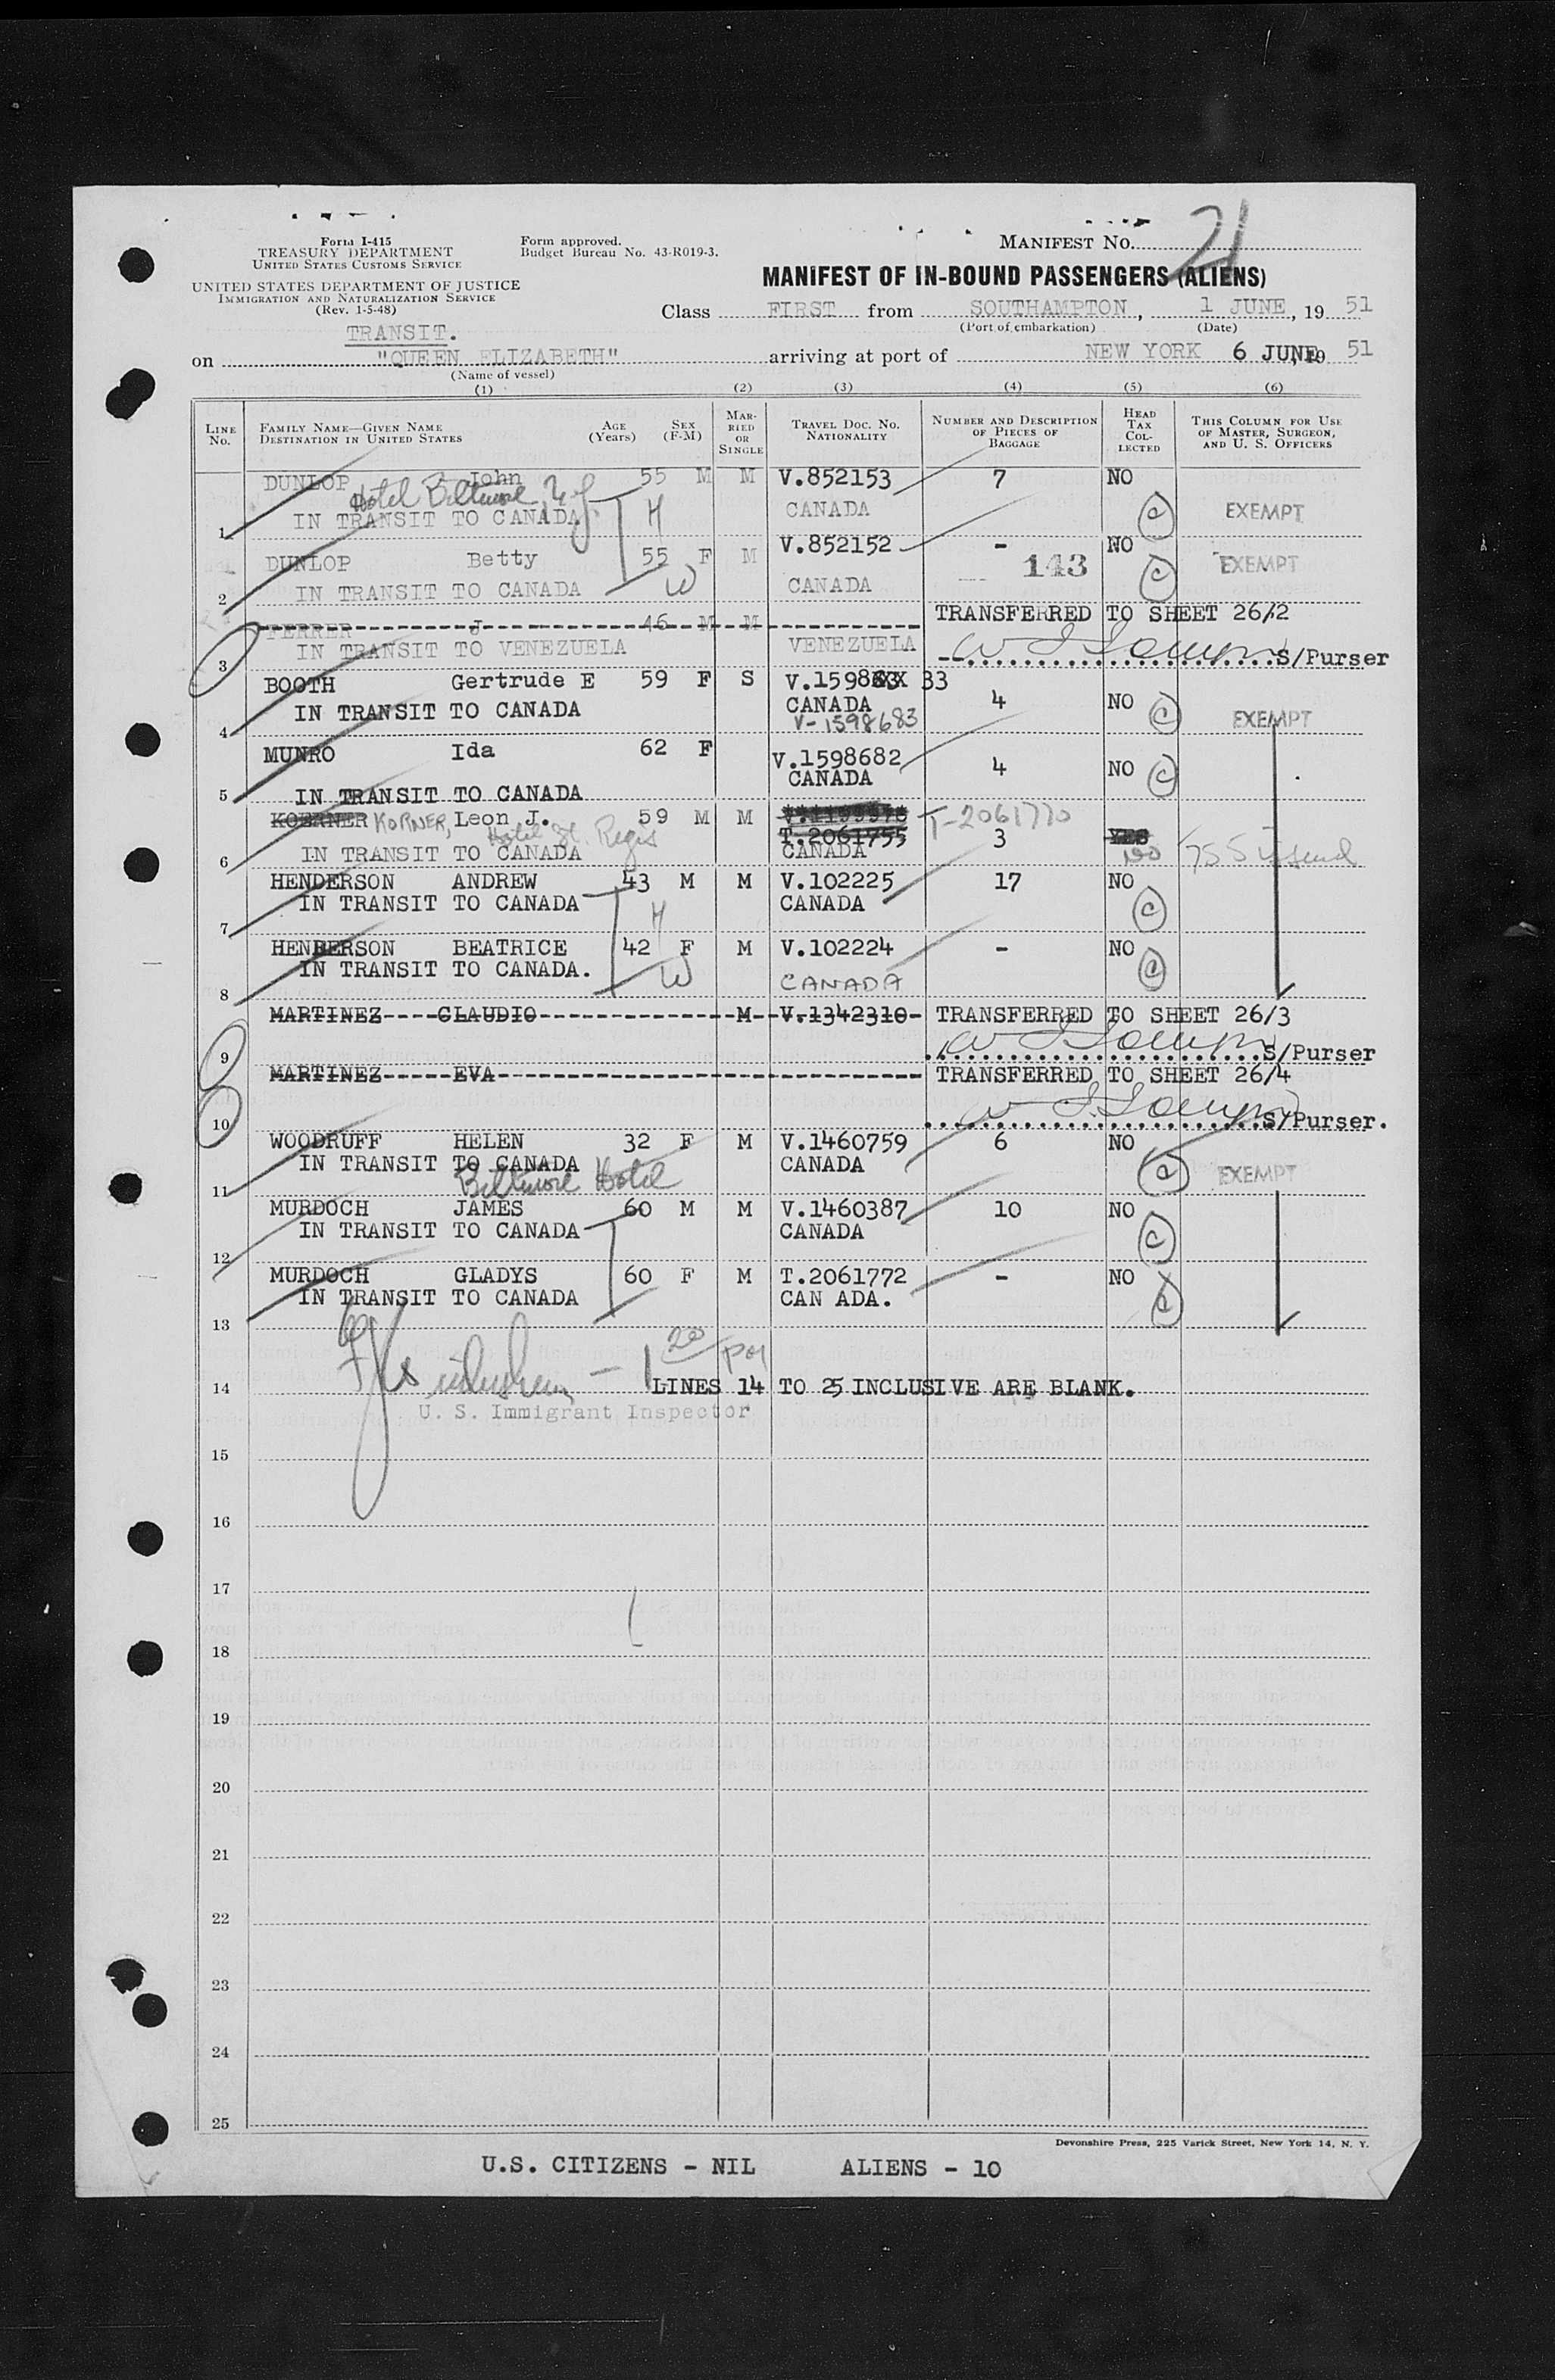 21
Form I-415
TREASURY DEPARTMENT
UNITED STATES CUSTOMS SERVICE
UNITED STATES DEPARTMENT OF JUSTICE
IMMIGRATION AND NATURALIZATION SERVICE
(Rev. 1-5-48)
Form approved.
Budget Bureau No. 43-R019-3.
MANIFEST No.
MANIFEST OF IN-BOUND PASSENGERS (ALIENS)
Class FIRST from SOUTHAMPTON, 1 JUNE, 19 51
(Port of embarkation) (Date)
TRANSIT.
on "QUEEN ELIZABETH" arriving at port of NEW YORK 6 JUNE, 19 51
(Name of vessel)
(1) (2) (3) (4) (5) (6)
LINE No. FAMILY NAME—GIVEN NAME DESTINATION IN UNITED STATES AGE (Years) SEX (F-M) MARRIED OR SINGLE TRAVEL DOC. NO. NATIONALITY NUMBER AND DESCRIPTION OF PIECES OF BAGGAGE HEAD TAX COLLECTED THIS COLUMN FOR USE OF MASTER, SURGEON, AND U. S. OFFICERS
DUNLOP John 55 M M V.852153 7 NO
Hotel Biltmore
1 IN TRANSIT TO CANADA H CANADA C EXEMPT
DUNLOP Betty 55 F M V.852152 - NO
143
2 IN TRANSIT TO CANADA W CANADA C EXEMPT
FERRER J 46 M M TRANSFERRED TO SHEET 26/2
3 IN TRANSIT TO VENEZUELA VENEZUELA S/Purser
BOOTH Gertrude E 59 F S V.159863XX 33
4 IN TRANSIT TO CANADA CANADA 4 NO C EXEMPT
V-1598683
MUNRO Ida 62 F V.1598682 4 NO C
CANADA
5 IN TRANSIT TO CANADA
KOERNER KORNER, Leon J. 59 M M T-2061770
Hotel St. Regis T.2061755 3 YES
6 IN TRANSIT TO CANADA CANADA NO
HENDERSON ANDREW 43 M M V.102225 17 NO
7 IN TRANSIT TO CANADA H CANADA C
HENDERSON BEATRICE 42 F M V.102224 - NO
8 IN TRANSIT TO CANADA. W CANADA C
MARTINEZ CLAUDIO M V.1342310 TRANSFERRED TO SHEET 26/3
9 S/Purser
MARTINEZ EVA TRANSFERRED TO SHEET 26/4
10 S/Purser.
WOODRUFF HELEN 32 F M V.1460759 6 NO
IN TRANSIT TO CANADA CANADA C EXEMPT
11 Biltmore Hotel
MURDOCH JAMES 60 M M V.1460387 10 NO
12 IN TRANSIT TO CANADA CANADA C
MURDOCH GLADYS 60 F M T.2061772 - NO
13 IN TRANSIT TO CANADA CAN ADA. C
14 LINES 14 TO 25 INCLUSIVE ARE BLANK.
U. S. Immigrant Inspector
15
16
17
18
19
20
21
22
23
24
25
Devonshire Press, 225 Varick Street, New York 14, N. Y.
U.S. CITIZENS - NIL ALIENS - 10